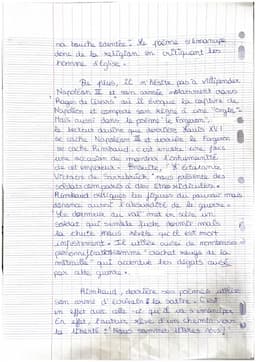 sa bouche sainte". Le poème s'émancipe
donc de la religion en critiquant les
hommes d'église.
De plus, il n'hésite pas à vilipender
Napoléon III et son armée notamment dans
Rages de Césars où il évoque la capture de
Napoléon et compare son règne à une "orgie".
Mais aussi dans le poème le Forgeron,
le lecteur devine que derrière Louis XVI
se cache Napoléon III et derrière le Forgeron
se cache Rimbaud, c'est encore une fois
une occasion de montrer l'inhumanité
de cet empereur. Ensuite, "L'éclatante
Victoire de Sarrebrück" nous présente des
soldats comparés à des êtres ridicules.
Rimbaud critique les figures du pouvoir mais
dénonce aussi l'absurdité de la guerre.
"Le dormeur du val" met en scène un
soldat qui semble juste dormir mais
la chute nous révèle qu'il est mort
Il utilise aussi de nombreuses
personnifications comme "crachat rouge de la
mitraille" qui accentue les dégâts causés
par cette guerre.
Rimbaud, derrière ses poèmes utilise
son arme d'écrivain : la satire. C'est
en effet avec elle qu'il va s'émanciper
En effet, l'auteur rêve d'un chemin vers
la liberté : "Nous sommes libres nous"